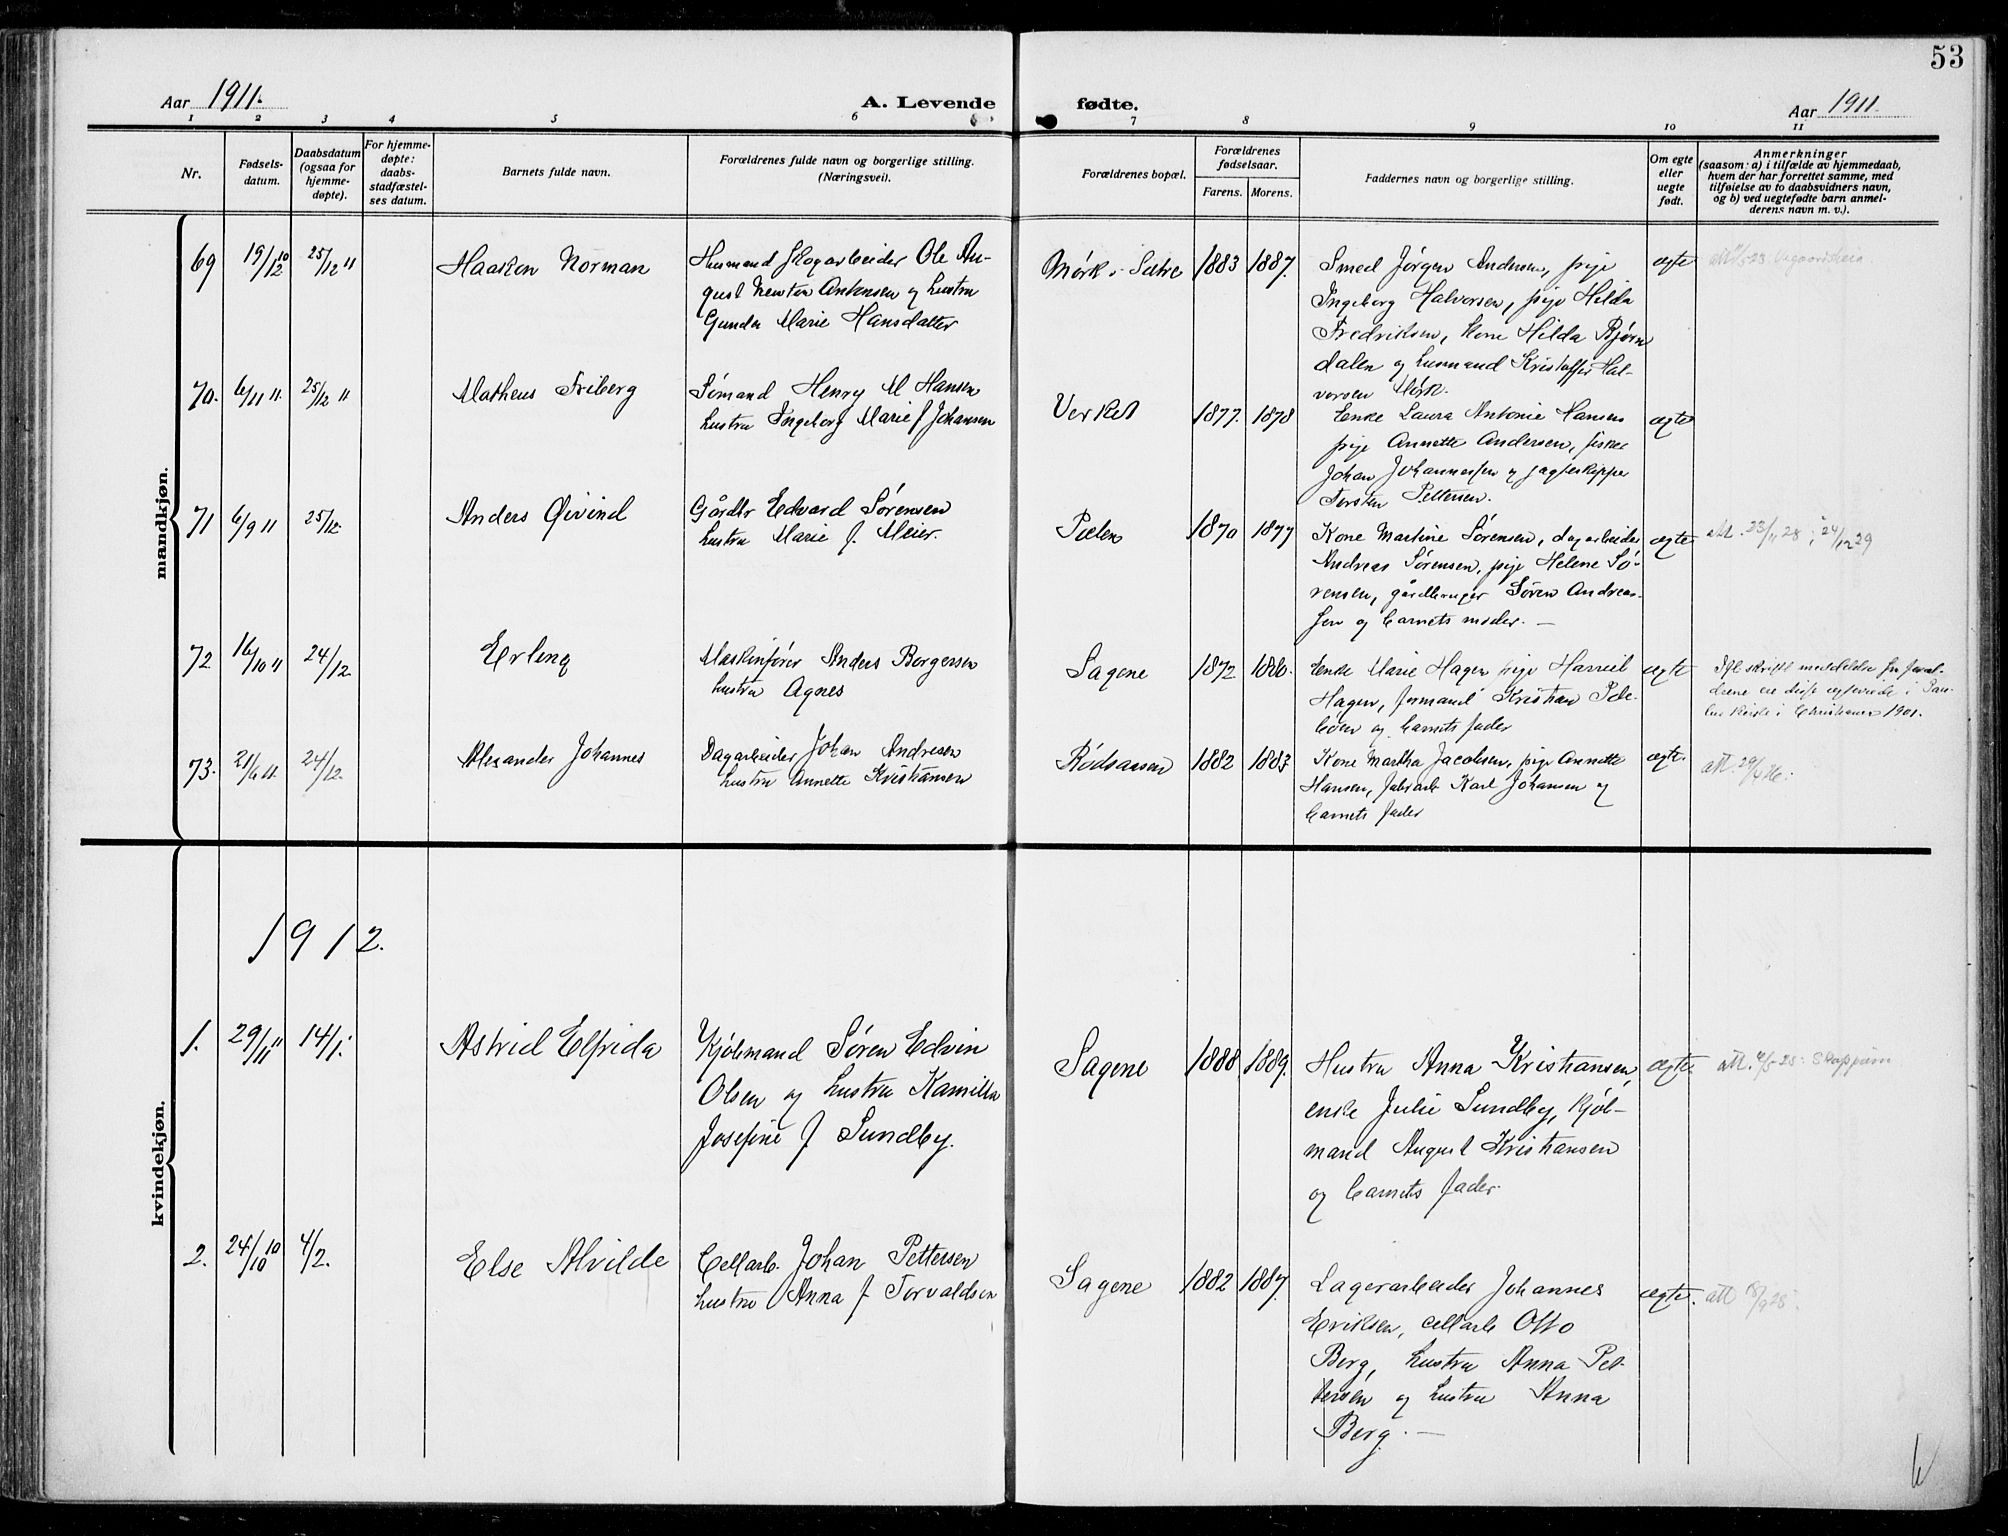 53
Aar 1911.
A. Levende fødte.
Aar 1911.
1 2 3 4 5 6 7 8 9 10 11
Nr.
Fødsels-
datum.
Daabsdatum
(ogsaa for
hjemme-
døpte).
For hjemme-
døpte:
daabs-
stadfæstel-
ses datum.
Barnets fulde navn.
Forældrenes fulde navn og borgerlige stilling.
(Næringsvei).
Forældrenes bopæl.
Forældrenes
fødselsaar.
Farens. Morens.
Faddernes navn og borgerlige stilling.
Om egte
eller
uegte
født.
Anmerkninger
(saasom: a) i tilfælde av hjemmedaab,
hvem der har forrettet samme, med
tilføielse av to daabsvidners navn,
og b) ved uegtefødte barn anmel-
derens navn m. v.).
mandkjøn.
69 19/10 12 25/12 11
Haakon Norman
Husmand Skogarbeider Ole Au-
gust Newton Antonsen og hustru
Gunda Marie Hansdatter
Mørk i Sætre 1883 1887.
Smed Jørgen Andersen, pige
Ingeborg Halvorsen, pige Hilda
Fredriksen, kone Hilda Bjørn
dalen og husmand Kristoffer Hal-
vorsen Mørk.
ægte
70. 6/11 11. 25/12 11
Matheus Friberg
Sømand Henry M Hansen
hustru Ingeborg Marie f Johansen
Verket 1877. 1878
Enke Laura Antonie Hansen
pige Annette Andersen, fisker
Johan Johannessen og jagteskipper
Torsten Pettersen.
ægte
71 6/9 11 25/12.
Anders Øivind
Gårdbr Edvard Sørensen
hustru Marie f. Meier.
Pælen 1870 1877
Kone Martine Sørensen, dagarbeider
Andreas Sørensen, pige Helene Sø-
rensen, gårdbruger Søren Andreas-
sen og barnets moder. —
ægte
att. 23/11 28; 24/12 29
72 16/10 11 24/12.
Erling
Maskinfører Anders Borgersen
hustru Agnes
Sagene 1872 1880.
Enke Marie Hagen pige Harriet
Hagen, formand Kristian Pde-
og barnets fader
ægte
Ifl skriftl meddelelse fra foræl-
drene er disse egteviede i Pau-
lus kirke i Christiania 1901.
73. 21/6 11. 24/12.
Alexander Johannes
Dagarbeider Johan Andresen
hustru Annette Kristiansen
Rødsaasen 1882 1883
Kone Martha Jacobsen, pige Annette
Hansen, fabrarb Karl Johansen og
barnets fader
ægte.
att. 29/4 26.
kvindekjøn.
1912.
1. 29/11 11 14/1.
Astrid Elfrida
Kjøbmand Søren Edvin
Olsen og hustru Kamilla
Josefine f Sundby.
Sagene 1888. 1889.
Hustru Anna Kristiansen,
enke Julie Sundby, kjøb-
mand August Kristiansen
og barnets fader.
ægte.
2. 24/10 10 4/2.
Else Alvilde
Cellarb. Johan Pettersen
hustru Anna f Torvaldsen
Sagene 1882 1887.
Lagerarbeider Johannes
Eriksen, cellarb Otto
Berg, hustru Anna Pet-
tersen og hustru Anna
Berg. —
ægte.
att 18/9 28.